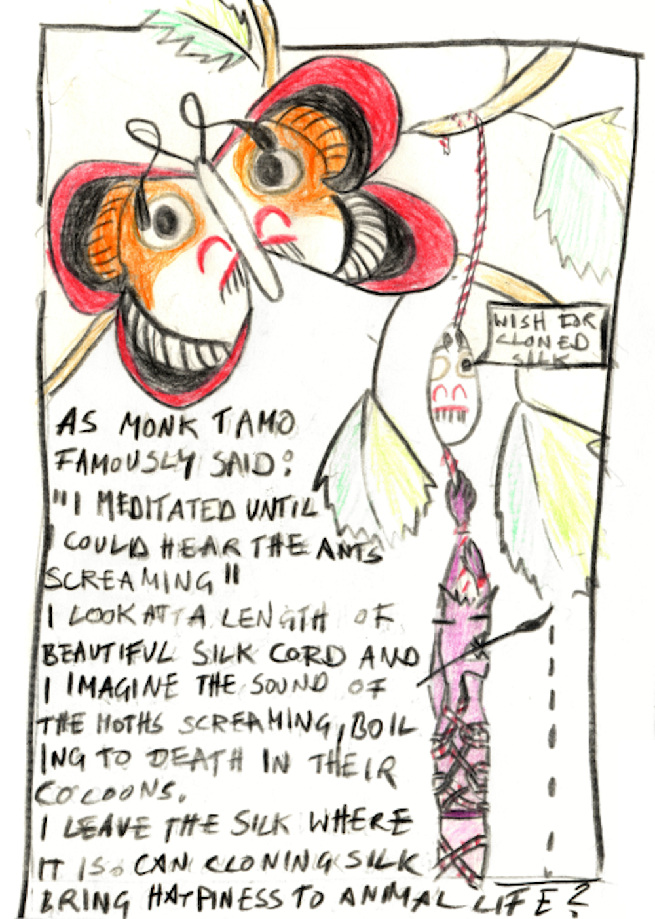 WISH FOR
CLONED
SILK
AS MONK TAMO
FAMOUSLY SAID:
"I MEDITATED UNTIL
I COULD HEAR THE ANTS
SCREAMING"
I LOOK AT A LENGTH OF
BEAUTIFUL SILK CORD AND
I IMAGINE THE SOUND OF
THE MOTHS SCREAMING, BOIL
ING TO DEATH IN THEIR
COCOONS.
I LEAVE THE SILK WHERE
IT IS. CAN CLONING SILK
BRING HAPPINESS TO ANIMAL LIFE?